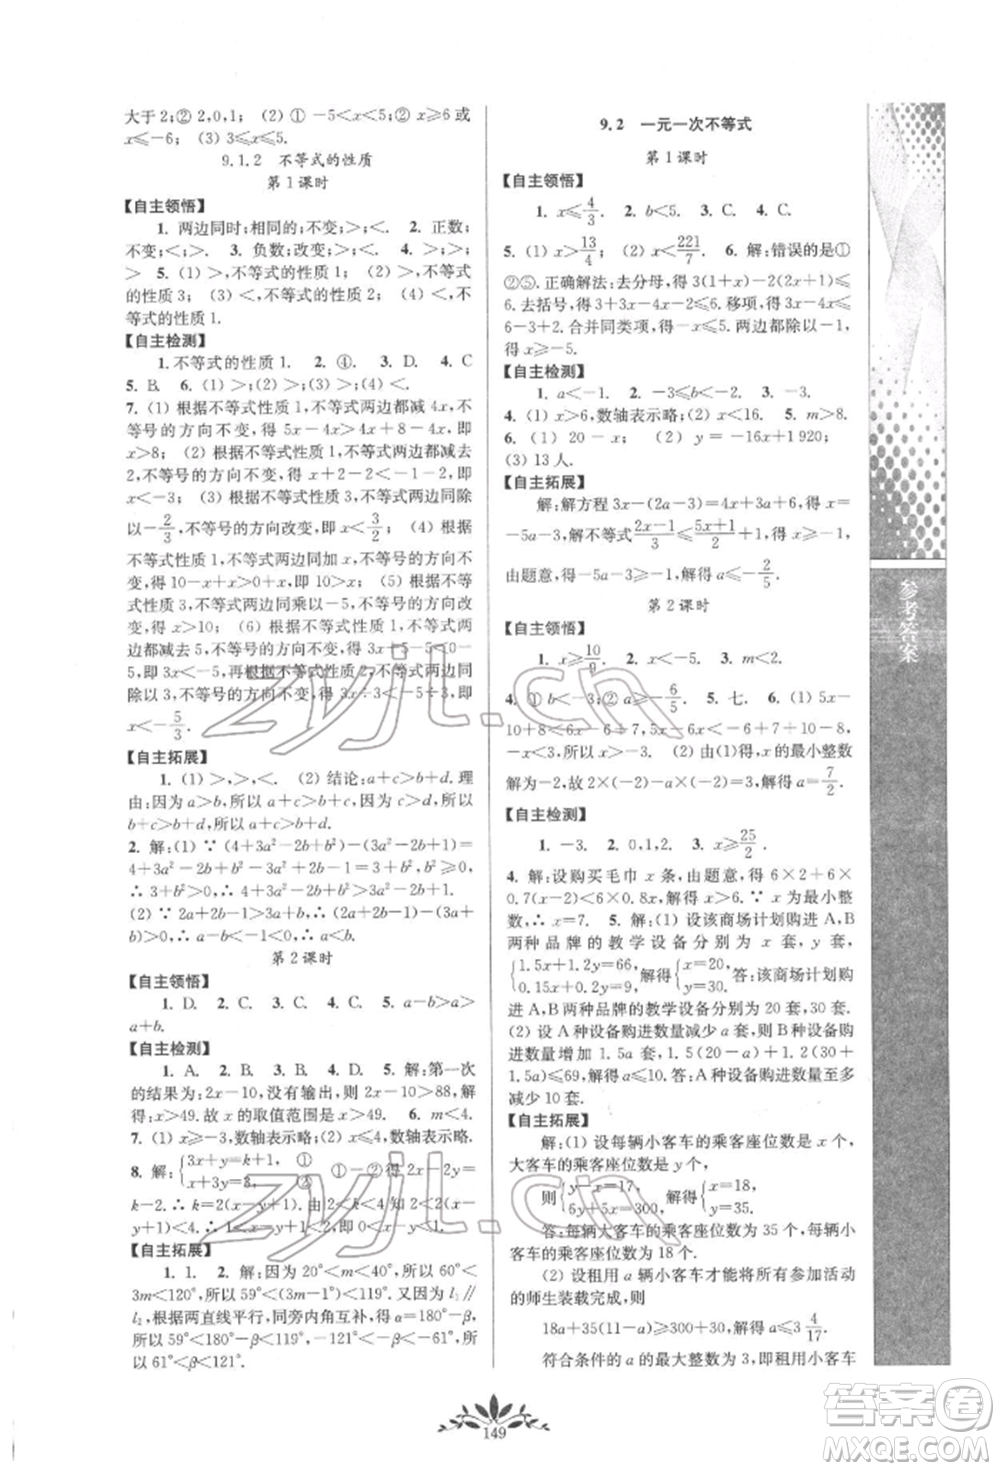 大于2;② 2,0,1; (2) ① -5<x<5;② x≥6或
x≤-6; (3) 3≤x≤5.
9.1.2 不等式的性质
第1课时
【自主领悟】
1. 两边同时;相同的;不变;<;<. 2. 正数;
不变;<;>. 3. 负数;改变;>;<. 4. >;>;
> 5. (1) <;不等式的性质1; (2) >;不等式
的性质3; (3) <;不等式的性质2; (4) <;不
等式的性质1.
【自主检测】
1.不等式的性质1. 2. ④. 3. D. 4. C
5. B. 6. (1) >; (2) >; (3) >; (4) <.
7. (1) 根据不等式性质1,不等式两边都减4x,不
等号的方向不变,得5x-4x>4x+8-4x,即
x>8; (2) 根据不等式性质1,不等式两边都减
2,不等号的方向不变,得x+2-2<-1-2,即
x<-3; (3) 根据不等式性质3,不等式两边同除
以-2/3,不等号的方向改变,即x<3/2; (4) 根据
不等式性质1,不等式两边同加x,不等号的方向不
变,得10-x+x>0+x,即x<10; (5) 根据不等
式性质3,不等式两边同乘以-5,不等号的方向改
变,得x>10; (6) 根据不等式性质1,不等式两
边都减去5,不等号的方向不变,得3x+5-5<
0-5,即3x<-5,再根据不等式性质2,两边都同
除以3,不等号的方向不变,得3x÷3<-5÷3,即
x<-5/3.
【自主拓展】
1. (1) >,>,<. (2) 结论:a+c>b+d.理
由:因为a>b,所以a+c>b+c.因为c>d,所以
b+c>b+d,所以a+c>b+d.
2. 解:(1) ∵ (4+3a²-2b+b²)-(3a²-2b+1)=
4+3a²-2b+b²-3a²+2b-1=b²+3,b²≥0,
∴ 3+b²>0.∴ 4+3a²-2b+b²>3a²-2b+1.
(2) ∵ 2a+2b-1>3a+b,∴ 2a+2b-3a-b>
1,∴ -a+b>1,∴ a-b<-1<0,∴ a<b.
第2课时
【自主领悟】
1. D. 2. C. 3. C. 4. C. 5. a-b>a>
a+b.
【自主检测】
1. A. 2. B. 3. B. 4. D. 5. 解:第一次
的结果为:2x-10,没有输出,则2x-10>88,解
得:x>49.故x的取值范围是x>49. 6. m<4.
7. (1) x≥-3,数轴表示略; (2) x≤4,数轴表示略.
8. 解:{3x+y=k+1, ①
x+3y=3. ② ①-②得2x-2y=k-
2,∴ k=2(x-y)+2.∵ 2<k<4,∴ 2<2(x-
y)+2<4,∴ 0<2(x-y)<2,∴ 0<x-y<1.
【自主拓展】
1. 1. 2. 解:因为20°<m<40°,所以60°<
3m<120°,所以59°<(3m-1)°<119°.又因为l₁∥
l₂,根据两直线平行,同旁内角互补,得α=180°-β,
所以59°<180°-β<119°,-121°<-β<-61°,
所以61°<β<121°.
9.2 一元一次不等式
第1课时
【自主领悟】
1. x≤4/3. 2. b<5. 3. C. 4. C.
5. (1) x>13/4; (2) x<221/7. 6. 解:错误的是①
②⑤.正确解法:去分母,得3(1+x)-2(2x+1)≤
6.去括号,得3+3x-4x-2≤6.移项,得3x-4x≤
6-3+2.合并同类项,得-x≤5.两边都除以-1,
得x≥-5.
【自主检测】
1. a<-1. 2. x<-3. 3. -3.
4. (1) x>6,数轴表示略;(2) x<16. 5. m>8.
6. (1) 20-x; (2) y=-16x+1 920;
(3) 13人.
【自主拓展】
解:解方程3x-(2a-3)=4x+3a+6,得x=
-5a-3,解不等式(2x-1)/3≤(5x+1)/2+1,得x≥-1,
由题意,得-5a-3≥-1,解得a≤-2/5.
第2课时
【自主领悟】
1. x≥10/9. 2. x<-5. 3. m<2.
4. ① b<-3;② a≥-6/5. 5. 七. 6. (1) 5x-
10+8<6x-6+7,5x-6x<-6+7+10-8,
-x<3,所以x>-3. (2) 由(1)得,x的最小整数
解为-2,故2×(-2)-a×(-2)=3,解得a=7/2.
【自主检测】
1. -3. 2. 0,1,2. 3. x≥25/2.
4. 解:设购买毛巾x条,由题意,得6×2+6×
0.7(x-2)<6×0.5x,解得x>6.∵ x为最小整
数,∴ x=7. 5. 解:(1) 设该商场计划购进A,B
两种品牌的教学设备分别为x套,y套,
{1.5x+1.2y=66,
0.15x+0.2y=9, 解得{x=20,
y=30. 答:该商场计划
购进A,B两种品牌的教学设备分别为20套,30套.
(2) 设A种设备购进数量减少a套,则B种设备购进
数量增加1.5a套,1.5(20-a)+1.2(30+
1.5a)≤69,解得a≤10.答:A种设备购进数量至多
减少10套.
【自主拓展】
解:(1) 设每辆小客车的乘客座位数是x个,
大客车的乘客座位数是y个,
则{y-x=17,
6y+5x=300, 解得{x=18,
y=35.
答:每辆大客车的乘客座位数为35个,每辆小
客车的乘客座位数为18个.
(2) 设租用a辆小客车才能将所有参加活动
的师生装载完成,则
18a+35(11-a)≥300+30,解得a≤3 4/17.
符合条件的a的最大整数为3,即租用小客车
参考答案
149
zyjl.cn
zyjl.cn
答案圈
MXQE.COM